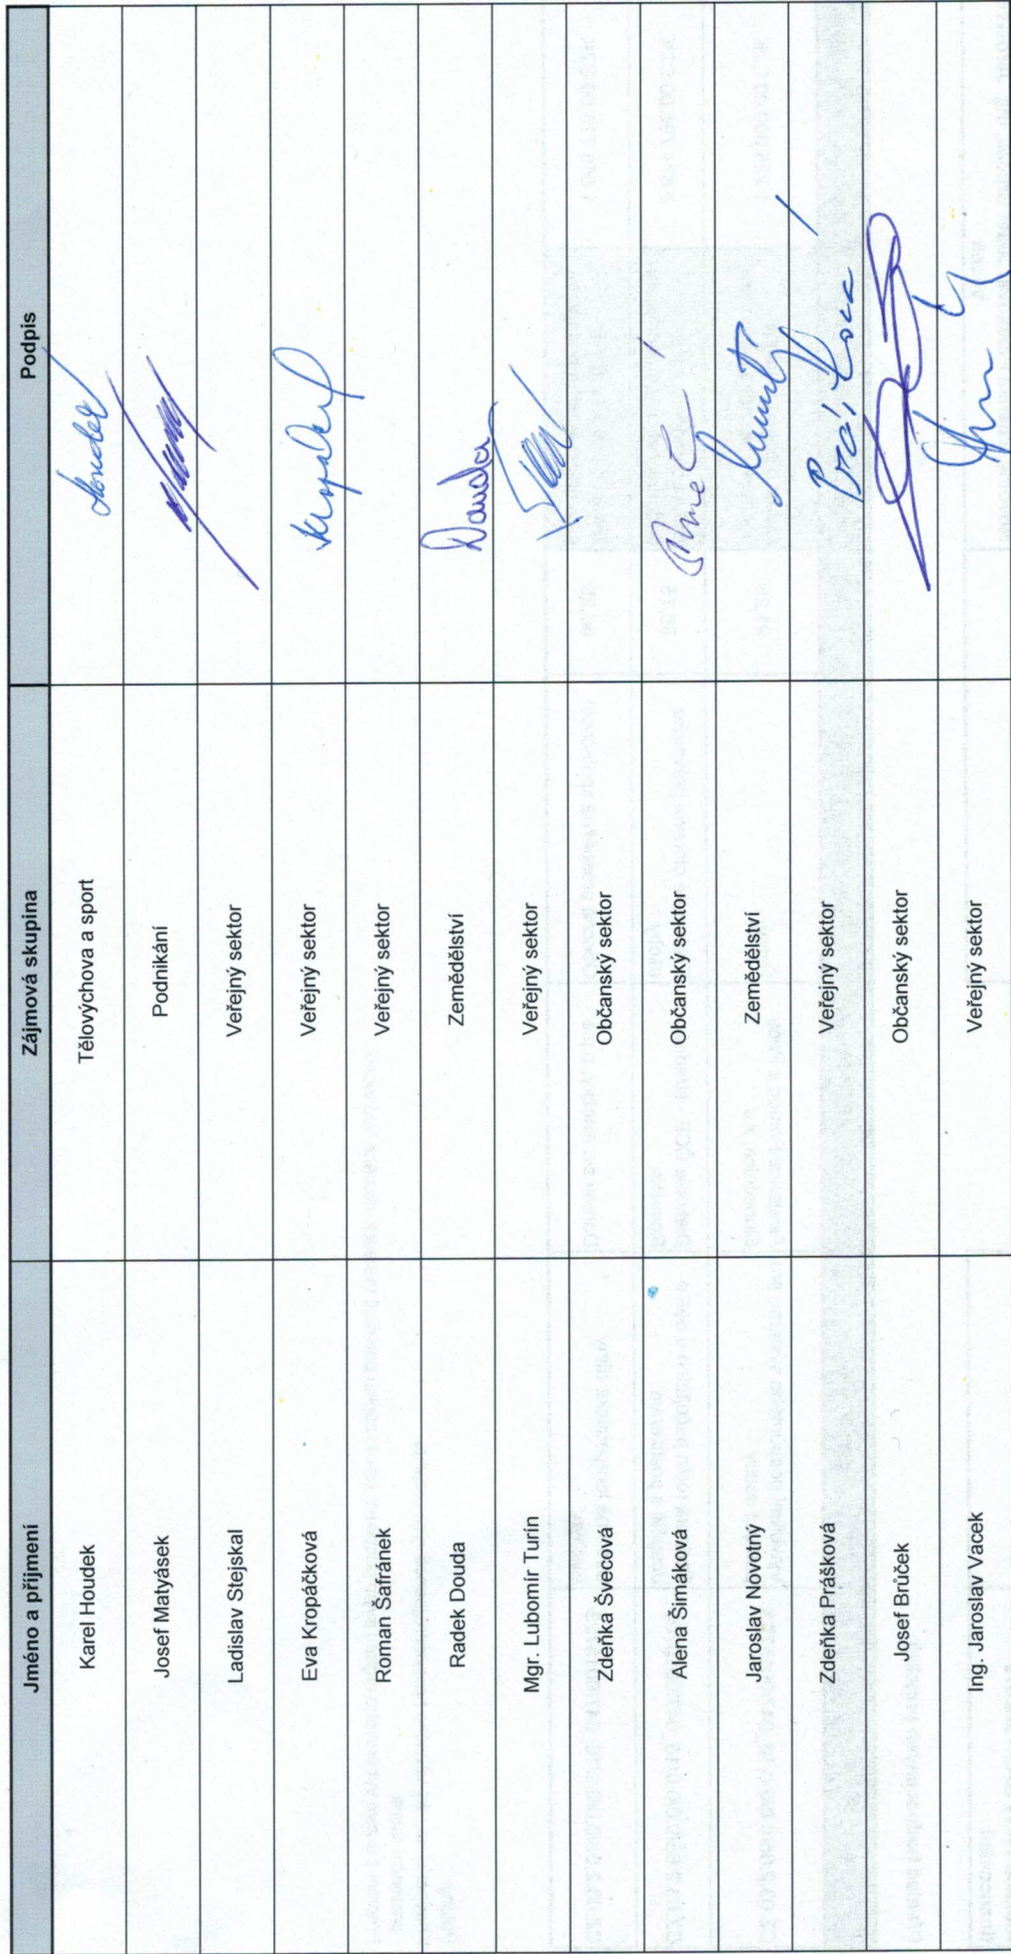 Jméno a příjmení Zájmová skupina Podpis
Karel Houdek Tělovýchova a sport Houdek
Josef Matyásek Podnikání
Ladislav Stejskal Veřejný sektor
Eva Kropáčková Veřejný sektor
Roman Šafránek Veřejný sektor
Radek Douda Zemědělství Douda
Mgr. Lubomír Turín Veřejný sektor
Zdeňka Švecová Občanský sektor
Alena Šimáková Občanský sektor
Jaroslav Novotný Zemědělství
Zdeňka Prášková Veřejný sektor
Josef Brůček Občanský sektor
Ing. Jaroslav Vacek Veřejný sektor